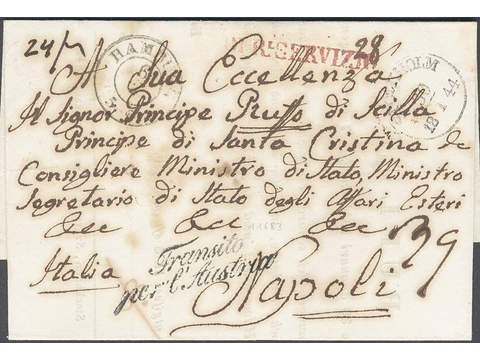 24/
28
HAM
Rl SERVIZIO
HOLM
12 1 44
A Sua Eccellenza
Il Signor Principe Ruffo di Scilla
Principe di Santa Cristina &c
Consigliere Ministro di Stato, Ministro
Segretario di Stato degli Affari Esteri
&cc &cc &cc
39
Transito
per l'Austria
Italia
Napoli